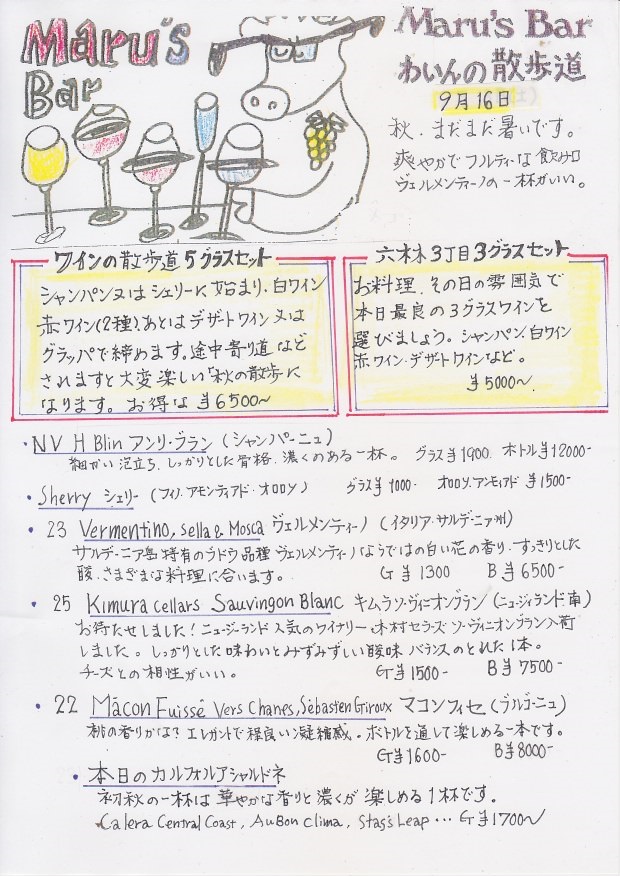 Maru's Bar
Maru's Bar
わいんの散歩道
9月16日
秋、まだまだ暑いです。
爽やかでフルティーな飲み口
ヴェルメンティーノの一杯がいい。
ワインの散歩道5グラスセット
シャンパン又はシェリーに始まり、白ワイン
赤ワイン(2種)、あとはデザートワイン又は
グラッパで締めます。途中寄り道など
されますと大変楽しい「秋の散歩に
なります。お得な ¥6500~
六本木3丁目3グラスセット
お料理、その日の雰囲気で
本日最良の3グラスワインを
選びましょう。シャンパン、白ワイン
赤ワイン・デザートワインなど。
¥5000~
・NV H Blin アンリ・ブラン (シャンパーニュ)
細かい泡立ち、しっかりとした骨格、濃くのある一杯。 グラス¥1900 ボトル¥12000-
・Sherry シェリー (フィノ・アモンティアド・オロロソ) グラス¥1000- オロロソ、アンモンティアド ¥1500-
・23 Vermentino, sella & Mosca ヴェルメンティーノ (イタリア・サルデーニア州)
サルデーニア島特有のブドウ品種 ヴェルメンティーノならではの白い花の香り、すっきりとした
酸、さまざまな料理に合います。 G¥1300 B¥6500-
・25 Kimura cellars Sauvingon Blanc キムラソーヴィニオンブラン (ニュージィランド南)
お待たせしました!ニュージーランド人気のワイナリー、木村セラーズ ソーヴィニオンブラン入荷
しました。しっかりとした味わいとみずみずしい酸味 バランスのとれた1本。
チーズとの相性がいい。 G¥1500- B¥7500-
・22 Mâcon Fuissé Vers Chanes, Sébastien Giroux マコンフィセ (ブルゴーニュ)
桃の香りかな? エレガントで程良い凝縮感。ボトルを通して楽しめる一本です。
G¥1600- B¥8000-
・本日のカルフォルアシャルドネ
初秋の一杯は華やかな香りと濃くが楽しめる1杯です。
Calera Central Coast, Au Bon Clima, Stag's Leap … G¥1700~